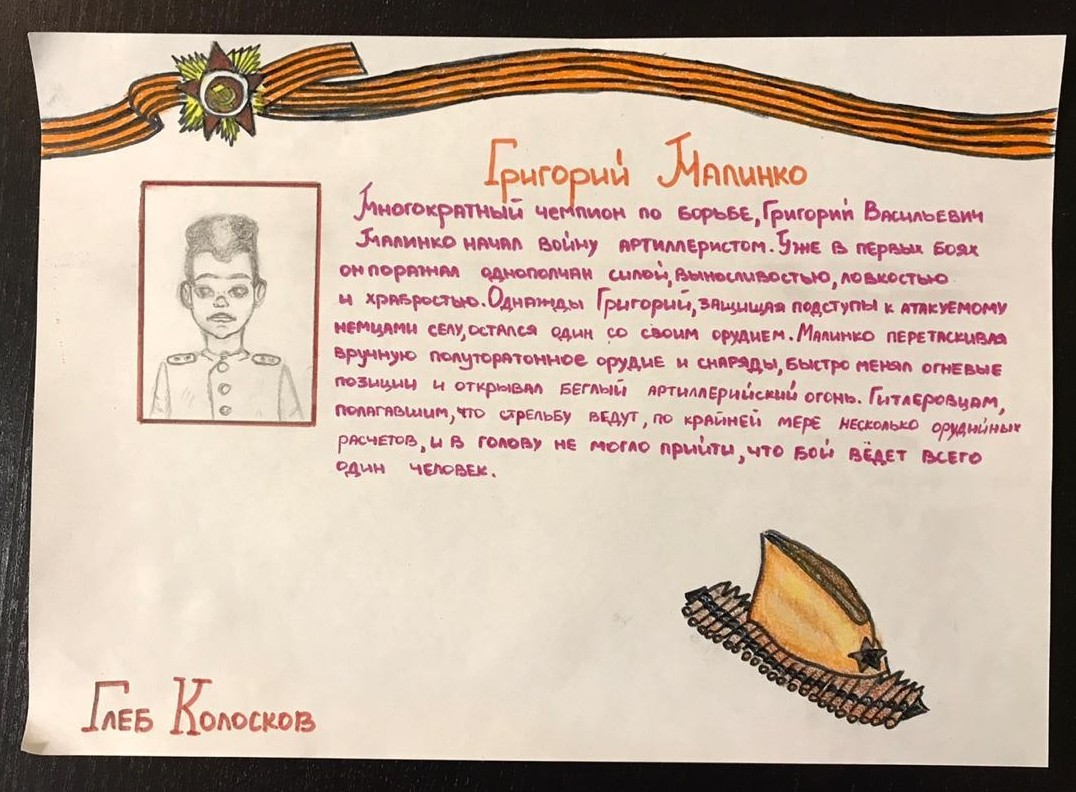 Григорий Малинко
Многократный чемпион по борьбе, Григорий Васильевич
Малинко начал войну артиллеристом. Уже в первых боях
он поражал однополчан силой, выносливостью, ловкостью
и храбростью. Однажды Григорий, защищая подступы к атакуемому
немцами селу, остался один со своим орудием. Малинко перетаскивал
вручную полуторатонное орудие и снаряды, быстро менял огневые
позиции и открывал беглый артиллерийский огонь. Гитлеровцам,
полагавшим, что стрельбу ведут, по крайней мере несколько орудийных
расчетов, и в голову не могло прийти, что бой вёдет всего
один человек.
Глеб Колосков